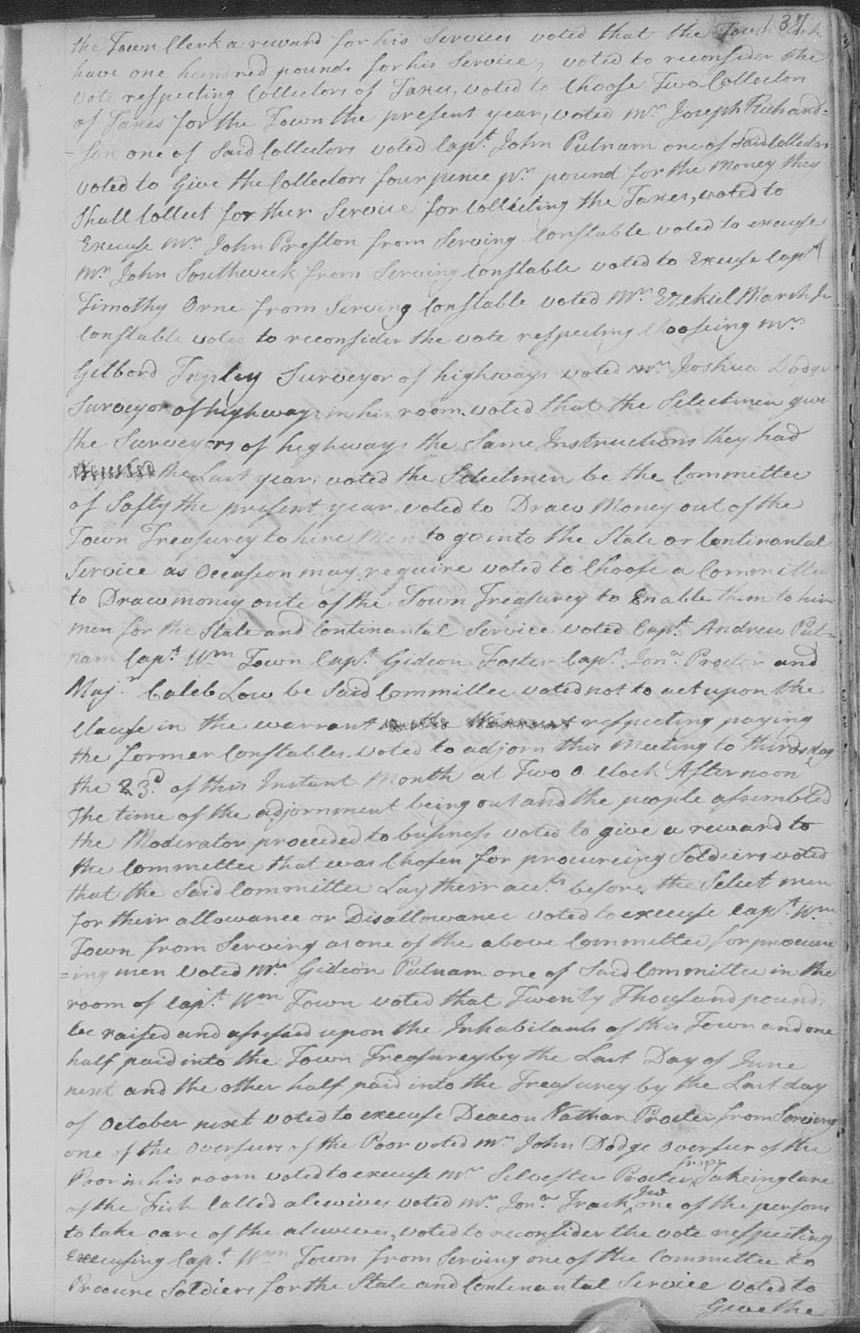 137
the Town Clerk a reward for his Services voted that the Town Clerk
have one hundred pounds for his Service, voted to reconsider the
vote respecting Collectors of Taxes, voted to Choose Two Collectors
of Taxes for the Town the present year, voted Mr Joseph Richard=
=son one of Said Collectors voted Capt John Putnam one of said Collectors
voted to Give the Collectors four pence pr pound for the Money they
Shall Collect for ther Service for Collecting the Taxes, voted to
Excuse Mr John Preston from Serving Constable voted to excuse
Mr John Southwick from Serving Constable voted to Excuse Capt
Timothy Orne from Serving Constable voted Mr Ezekiel Marsh Jr
Constable voted to reconsider the vote respecting Chooseing Mr
Gilbord Tapley Surveyor of highways voted Mr Joshua Dodge
Surveyor of highways in his room. voted that the Selectmen give
the Surveyors of highways the Same Instructions they had
the Last year, voted the Selectmen be the Committee
of Safty the present year, voted to Draw Money out of the
Town Treasurey to hire Men to go into the State or Continantal
Service as Occasion may require voted to Choose a Committee
to Draw money oute of the Town Treasurey to Enable them to hire
men for the State and Continantal Service voted Capt Andrew Put=
nam Capt Wm Town Capt Gideon Foster Capt Jona Procter and
Majr Caleb Low be Said Committee voted not to act upon the
Clause in the warrant respecting paying
the former Constables. voted to adjorn this Meeting to thirdsday
the 23d of this Instant Month at Two o Clock Afternoon
The time of the adjornment being out and the people assembled
the Moderator proceded to business voted to give a reward to
the Committee that was Chosen for procureing Soldiers voted
that the Said Committee Lay their accts before the Select men
for their allowance or Disallowance voted to excuse Capt Wm
Town from Serving as one of the above Committee for procure
=ing men voted Mr Gideon Putnam one of Said Committee in the
room of Capt Wm Town voted that Twenty Thousand pounds
be raised and assessed upon the Inhabitants of this Town and one
half paid into the Town Treasurey by the Last Day of June
next and the other half paid into the Treasurey by the Last day
of October next voted to excuse Deacon Nathan Procter from Serving
one of the overseers of the Poor voted Mr John Dodge overseer of the
Poor in his room voted to excuse Mr Silvester Procter from Takeing Care
of the Fish Called alewives voted Mr Jona Trask Jur one of the persons
to take care of the alewives, voted to reconsider the vote respecting
Excusing Capt Wm Town from Serving one of the Committee to
Procure Soldiers for the State and Contenantal Service voted to
Give the